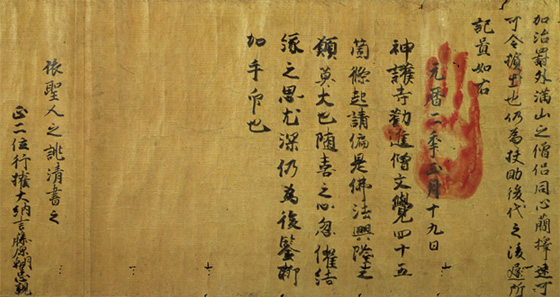 加治罸外満山之僧侶同心蘭擇速
可令擯出也仍為扶助後代之凌遅所
記置如右
元暦二年正月十九日
神護寺勧進僧文覺四十五
箇條起請偏是佛法興隆之
願莫大也随喜之心忽催結
縁之思尤深仍為後鑒聊
加手印也
依聖人之誂清書之
正二位行權大納言藤原朝臣忠親